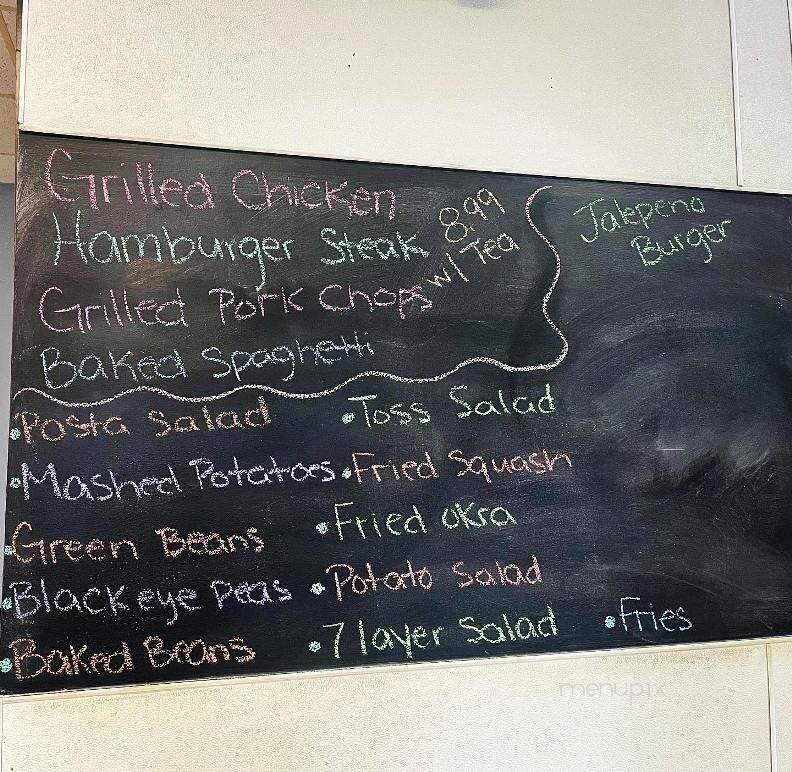 Grilled Chicken
Hamburger Steak
Grilled Pork Chops
Baked Spaghetti
8.99
w/ Tea
Jalepeno
Burger
Pasta Salad
Mashed Potatoes
Green Beans
Blackeye Peas
Baked Beans
Toss Salad
Fried Squash
Fried Okra
Potato Salad
7 layer Salad
Fries
menupix